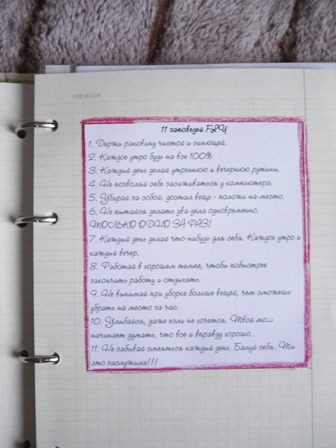 copybook
11 заповедей FLY
1. Держи раковину чистой и сияющей.
2. Каждое утро будь на все 100%
3. Каждый день делай утреннюю и вечернюю рутины.
4. Не позволяй себе засиживаться у компьютера.
5. Убирай за собой: достал вещь - положи на место.
6. Не пытайся делать два дела одновременно.
ТОЛЬКО ОДНО ЗА РАЗ!
7. Каждый день делай что-нибудь для себя. Каждое утро и
каждый вечер.
8. Работай в хорошем темпе, чтобы побыстрее
закончить работу и отдыхать.
9. Не вынимай при уборке больше вещей, чем сможешь
убрать на место за час.
10. Улыбайся, даже если не хочется. Твой мозг
начинает думать, что все и вправду хорошо.
11. Не забывай смеяться каждый день. Балуй себя. Ты
это заслужила!!!